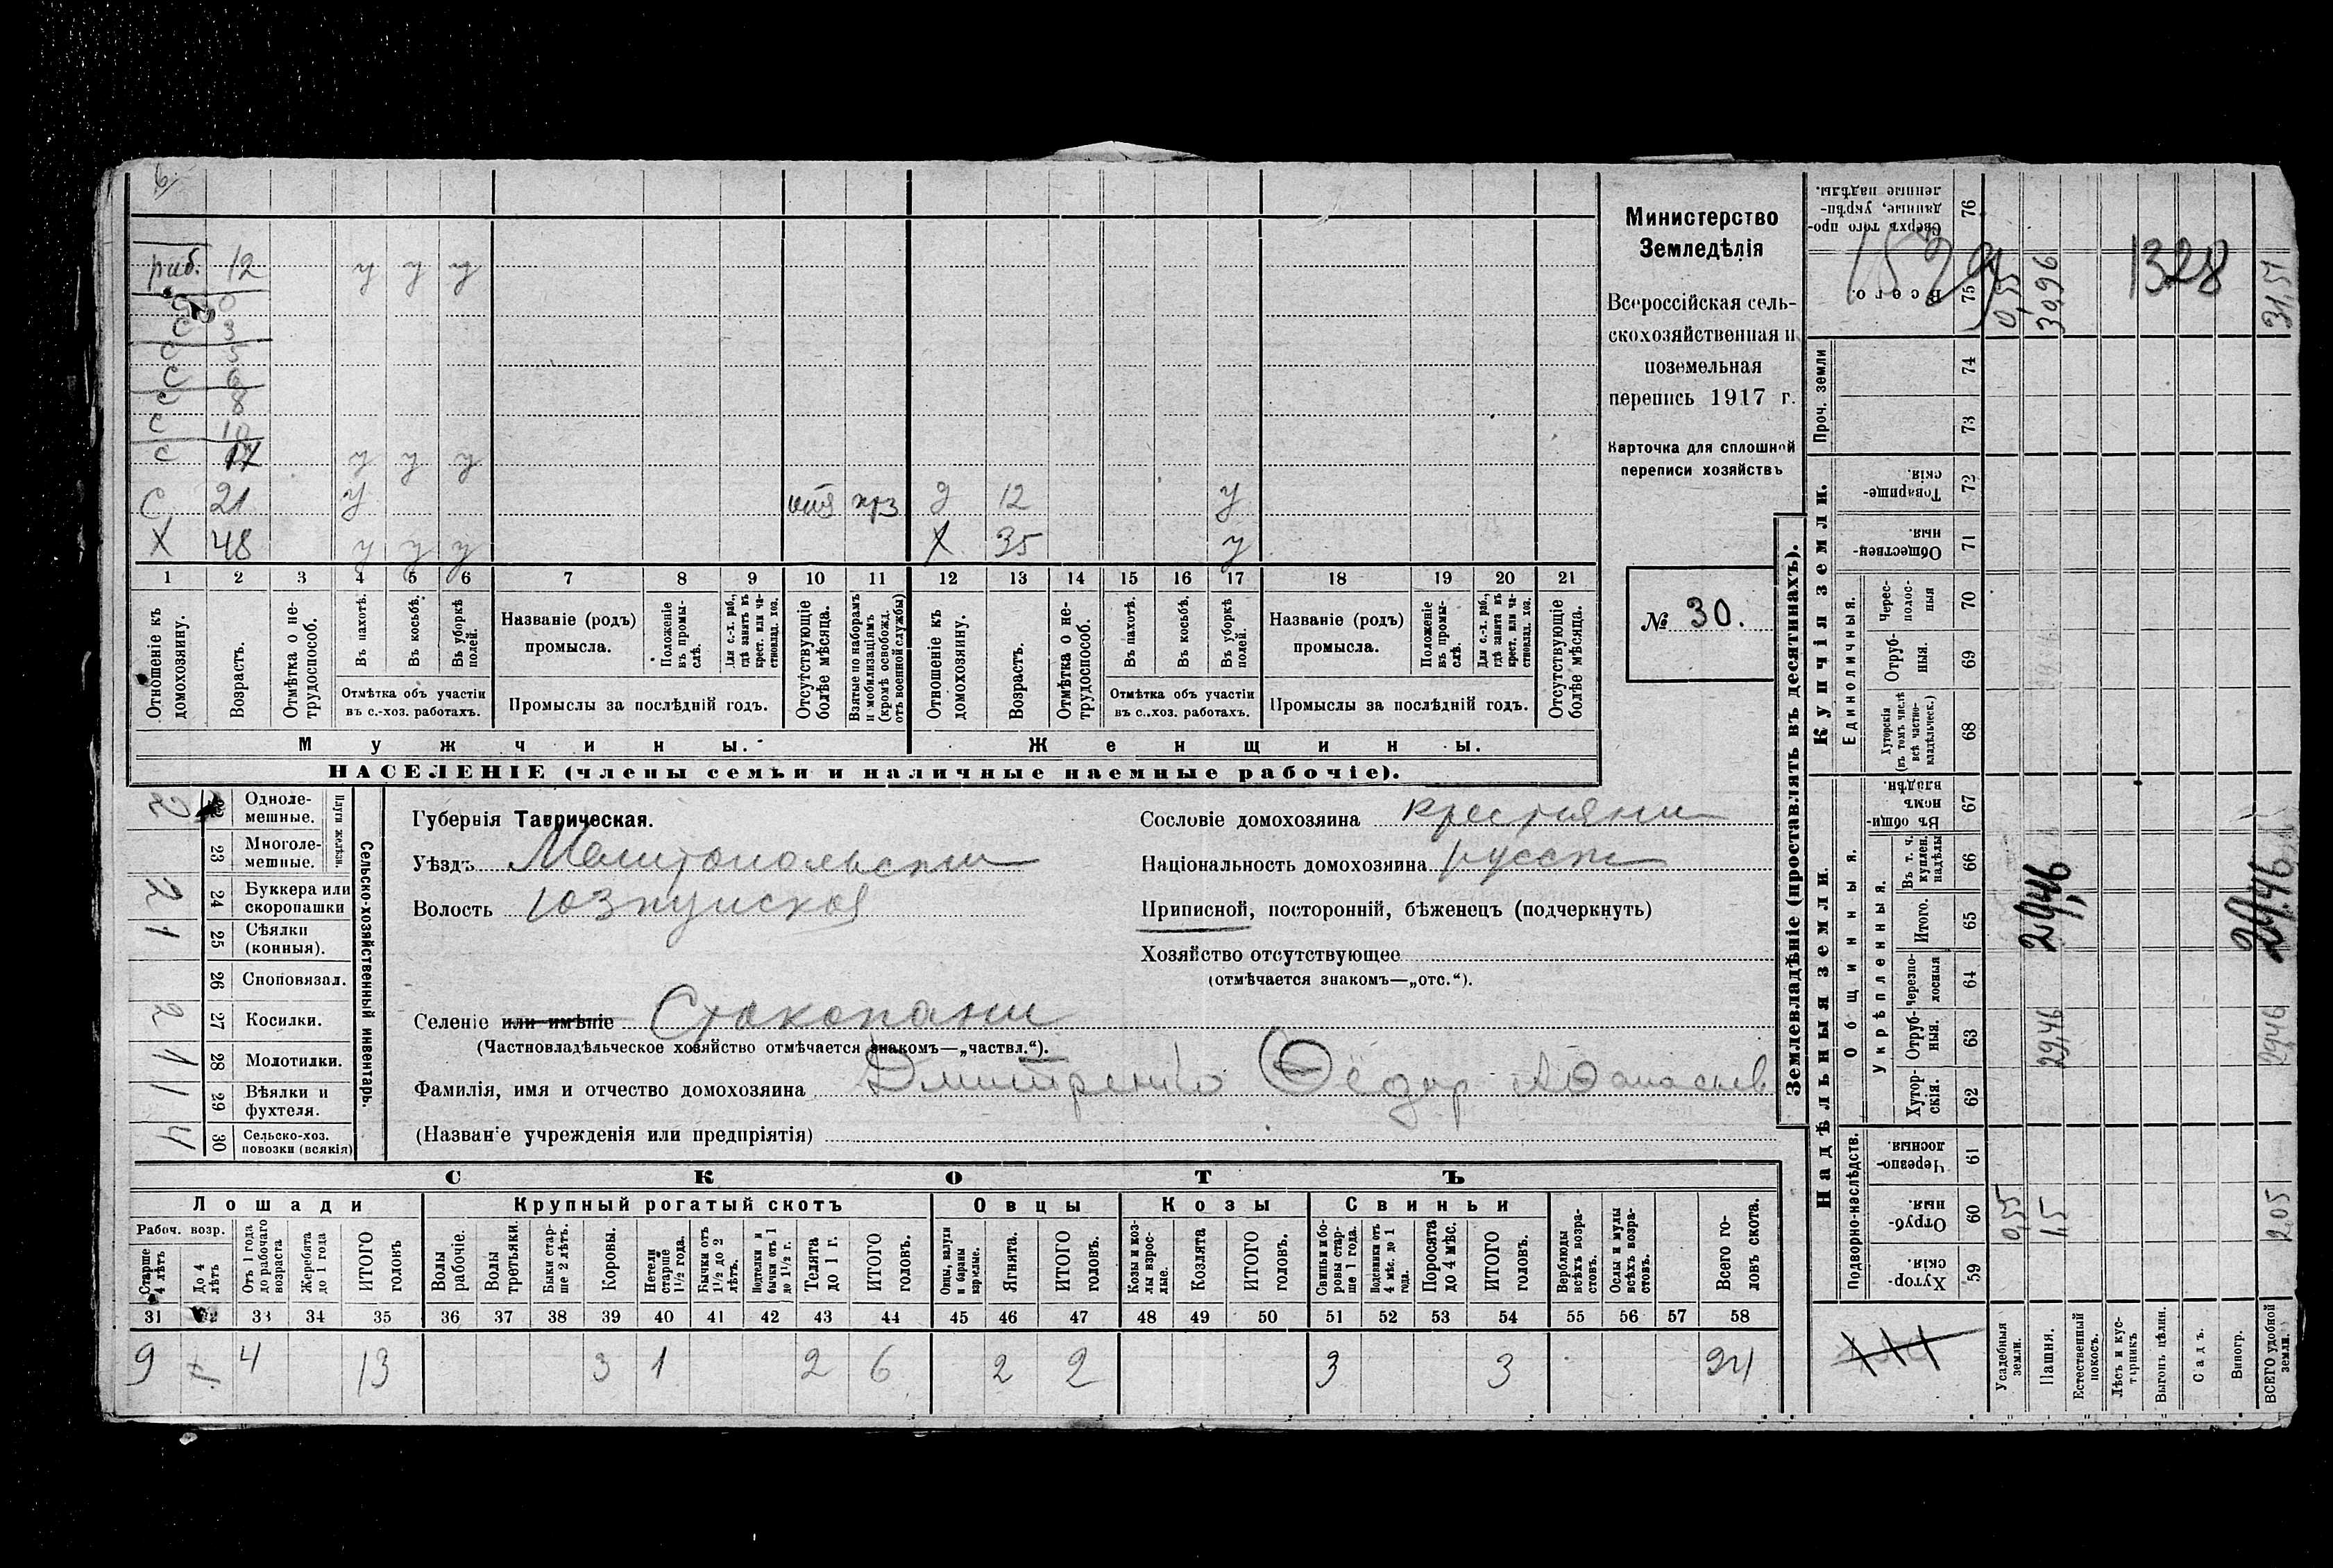 6
раб. 12 у у у
с 0
с 3
с 5
с 6
с 8
с 10
с 17 у у у
с 21 у д 12 у
х 48 у у у х 35 у
1 2 3 4 5 6 7 8 9 10 11 12 13 14 15 16 17 18 19 20 21
Отношеніе къ домохозяину.
Возрастъ.
Отмѣтка о нетрудоспособ.
Въ пахотѣ.
Въ косьбѣ.
Въ уборкѣ полей.
Отмѣтка объ участіи
въ с.-хоз. работахъ.
Названіе (родъ)
промысла.
Положеніе въ промыслѣ.
Для с.-х. раб., гдѣ занятъ въ крест. или частновлад. хоз.
Промыслы за послѣдній годъ.
Отсутствующіе болѣе мѣсяца.
Взятые по наборамъ и мобилизаціямъ (кромѣ освобожд. отъ военной службы)
Отношеніе къ домохозяину.
Возрастъ.
Отмѣтка о нетрудоспособ.
Въ пахотѣ.
Въ косьбѣ.
Въ уборкѣ полей.
Отмѣтка объ участіи
въ с.-хоз. работахъ.
Названіе (родъ)
промысла.
Положеніе въ промыслѣ.
Для с.-х. раб., гдѣ занята въ крест. или частновлад. хоз.
Промыслы за послѣдній годъ.
Отсутствующіе болѣе мѣсяца.
Мужчины.
Женщины.
НАСЕЛЕНІЕ (члены семьи и наличные наемные рабочіе).
Министерство
Земледѣлія
Всероссійская сель-
скохозяйственная и
поземельная
перепись 1917 г.
Карточка для сплошной
переписи хозяйствъ
№ 30.
Сельско-хозяйственный инвентарь.
Плуги желѣзн.
Однолемешные.
23 Многолемешные.
2 24 Буккера или скоропашки
1 25 Сѣялки (конныя).
26 Сноповязал.
2 27 Косилки.
1 28 Молотилки.
1 29 Вѣялки и фухтеля.
4 30 Сельско-хоз. повозки (всякія)
Губернія Таврическая.
Уѣздъ Мелитопольскій
Волость
Селеніе или имѣніе
(Частновладѣльческое хозяйство отмѣчается знакомъ—„частвл.“).
Фамилія, имя и отчество домохозяина Дмитренко Ѳёдор Аѳанасьев
(Названіе учрежденія или предпріятія)
Сословіе домохозяина крестьянин
Національность домохозяина русск
Приписной, посторонній, бѣженецъ (подчеркнуть)
Хозяйство отсутствующее
(отмѣчается знакомъ—„отс.“).
СКОТЪ
Лошади Крупный рогатый скотъ Овцы Козы Свиньи
Рабоч. возр.
Старше 4 лѣтъ
До 4 лѣтъ
Отъ 1 года до рабочаго возраста
Жеребята до 1 года
ИТОГО головъ
Волы рабочіе.
Волы третьяки.
Быки старше 2 лѣтъ.
Коровы.
Нетели старше 1 1/2 года.
Бычки отъ 1 1/2 до 2 лѣтъ.
Подтелки и бычки отъ 1 до 1 1/2 г.
Телята до 1 г.
ИТОГО головъ.
Овцы, валухи и бараны взрослые.
Ягнята.
ИТОГО головъ.
Козы и козлы взрослые.
Козлята
ИТОГО головъ.
Свиньи и боровы старше 1 года.
Подсвинки отъ 4 мѣс. до 1 года.
Поросята до 4 мѣс.
ИТОГО головъ.
Верблюды всѣхъ возрастовъ.
Ослы и мулы всѣхъ возрастовъ.
Всего головъ скота.
31 32 33 34 35 36 37 38 39 40 41 42 43 44 45 46 47 48 49 50 51 52 53 54 55 56 57 58
9 4 13 3 1 2 6 2 2 3 3 24
Землевладѣніе (проставлять въ десятинахъ).
Надѣльныя земли.
Купчія земли.
Подворно-наслѣдств.
Общинныя.
Укрѣпленныя.
Единоличныя.
Проч. земли
59 Хуторскія.
60 Отрубныя.
61 Черезполосныя
62 Хуторскія.
63 Отрубныя.
64 Черезполосныя
65 Итого.
66 Въ т. ч. куплен. надѣлы
67 Въ общинномъ владѣн.
68 Хуторскія (въ томъ числѣ всѣ частновладѣльческ.)
69 Отрубныя.
70 Чересполосныя
71 Общественныя.
72 Товарищескія.
73
74
75 Всего.
76 Сверхъ того проданные, укрѣпленные надѣлы.
Усадебныя земли. 0,55 0,55
Пашня. 1,5 29,46 29,46 30,96
Естественный покосъ.
Лѣсъ и кустарникъ
Выгонъ цѣлин.
Садъ.
Виногр.
ВСЕГО удобной земли. 2,05 29,46 29,46 31,51
1529
1328